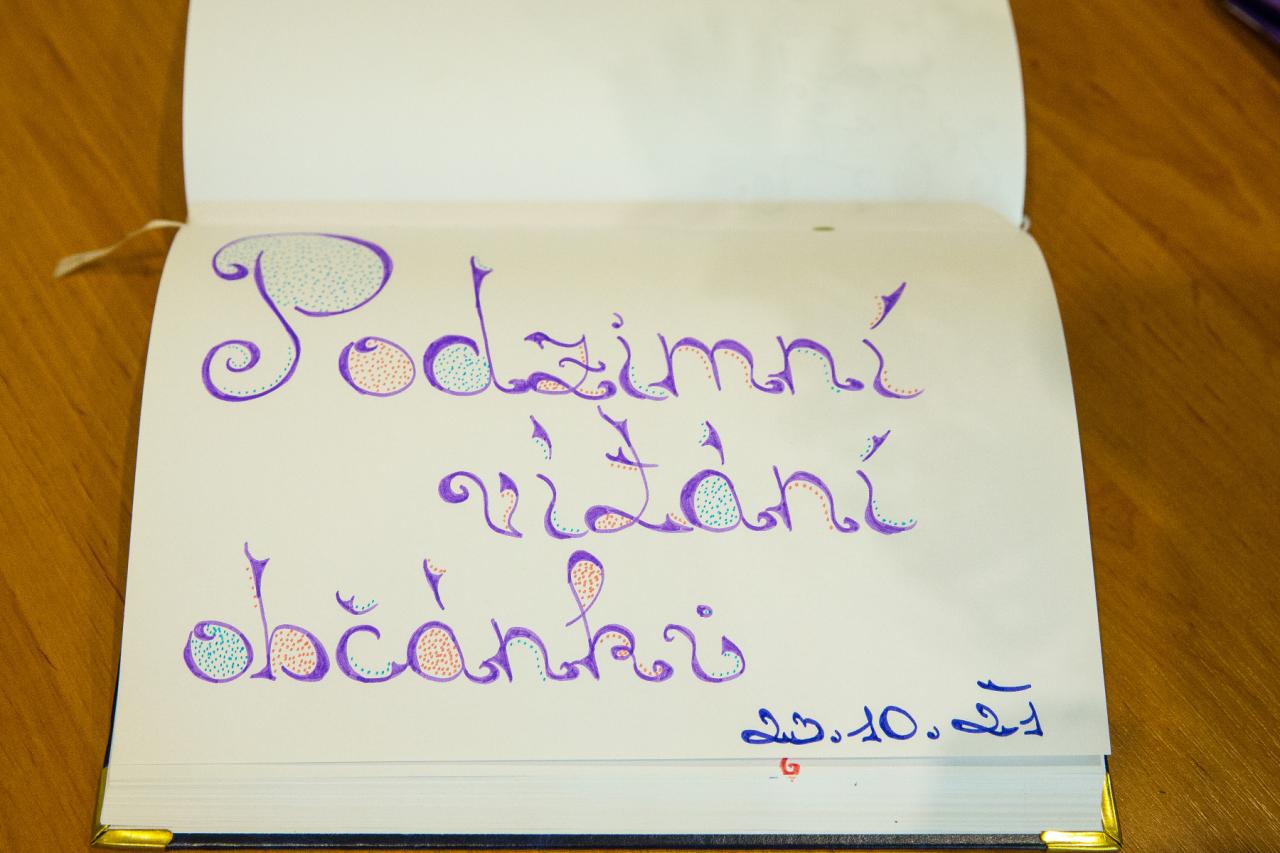 Podzimní
vítání
občánků
23.10.21